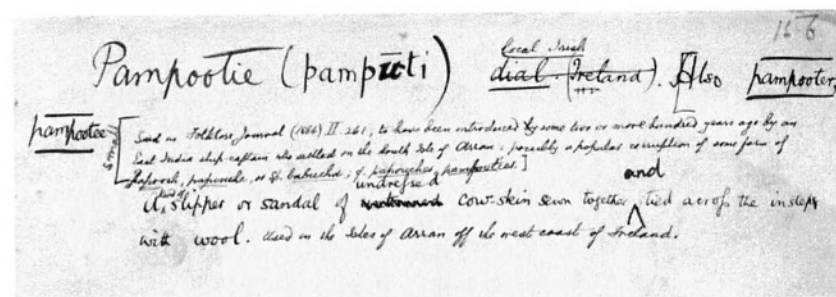 16 6
Pampootie (pampūti) local Irish dial. (Ireland). [Also pampooter,
pampootee small [Said in Folklore Journal (1884) II. 261, to have been introduced by some two or more hundred years ago by an
East India ship-captain who settled on the South Isle of Arran: possibly a popular corruption of some form of
papoosh, papouche, or Sp. babucha; cf. papouches, pampouties.]
A kind of slipper or sandal of untanned undressed cow-skin sewn together and tied across the instep
with wool. Used in the Isles of Arran off the west coast of Ireland.